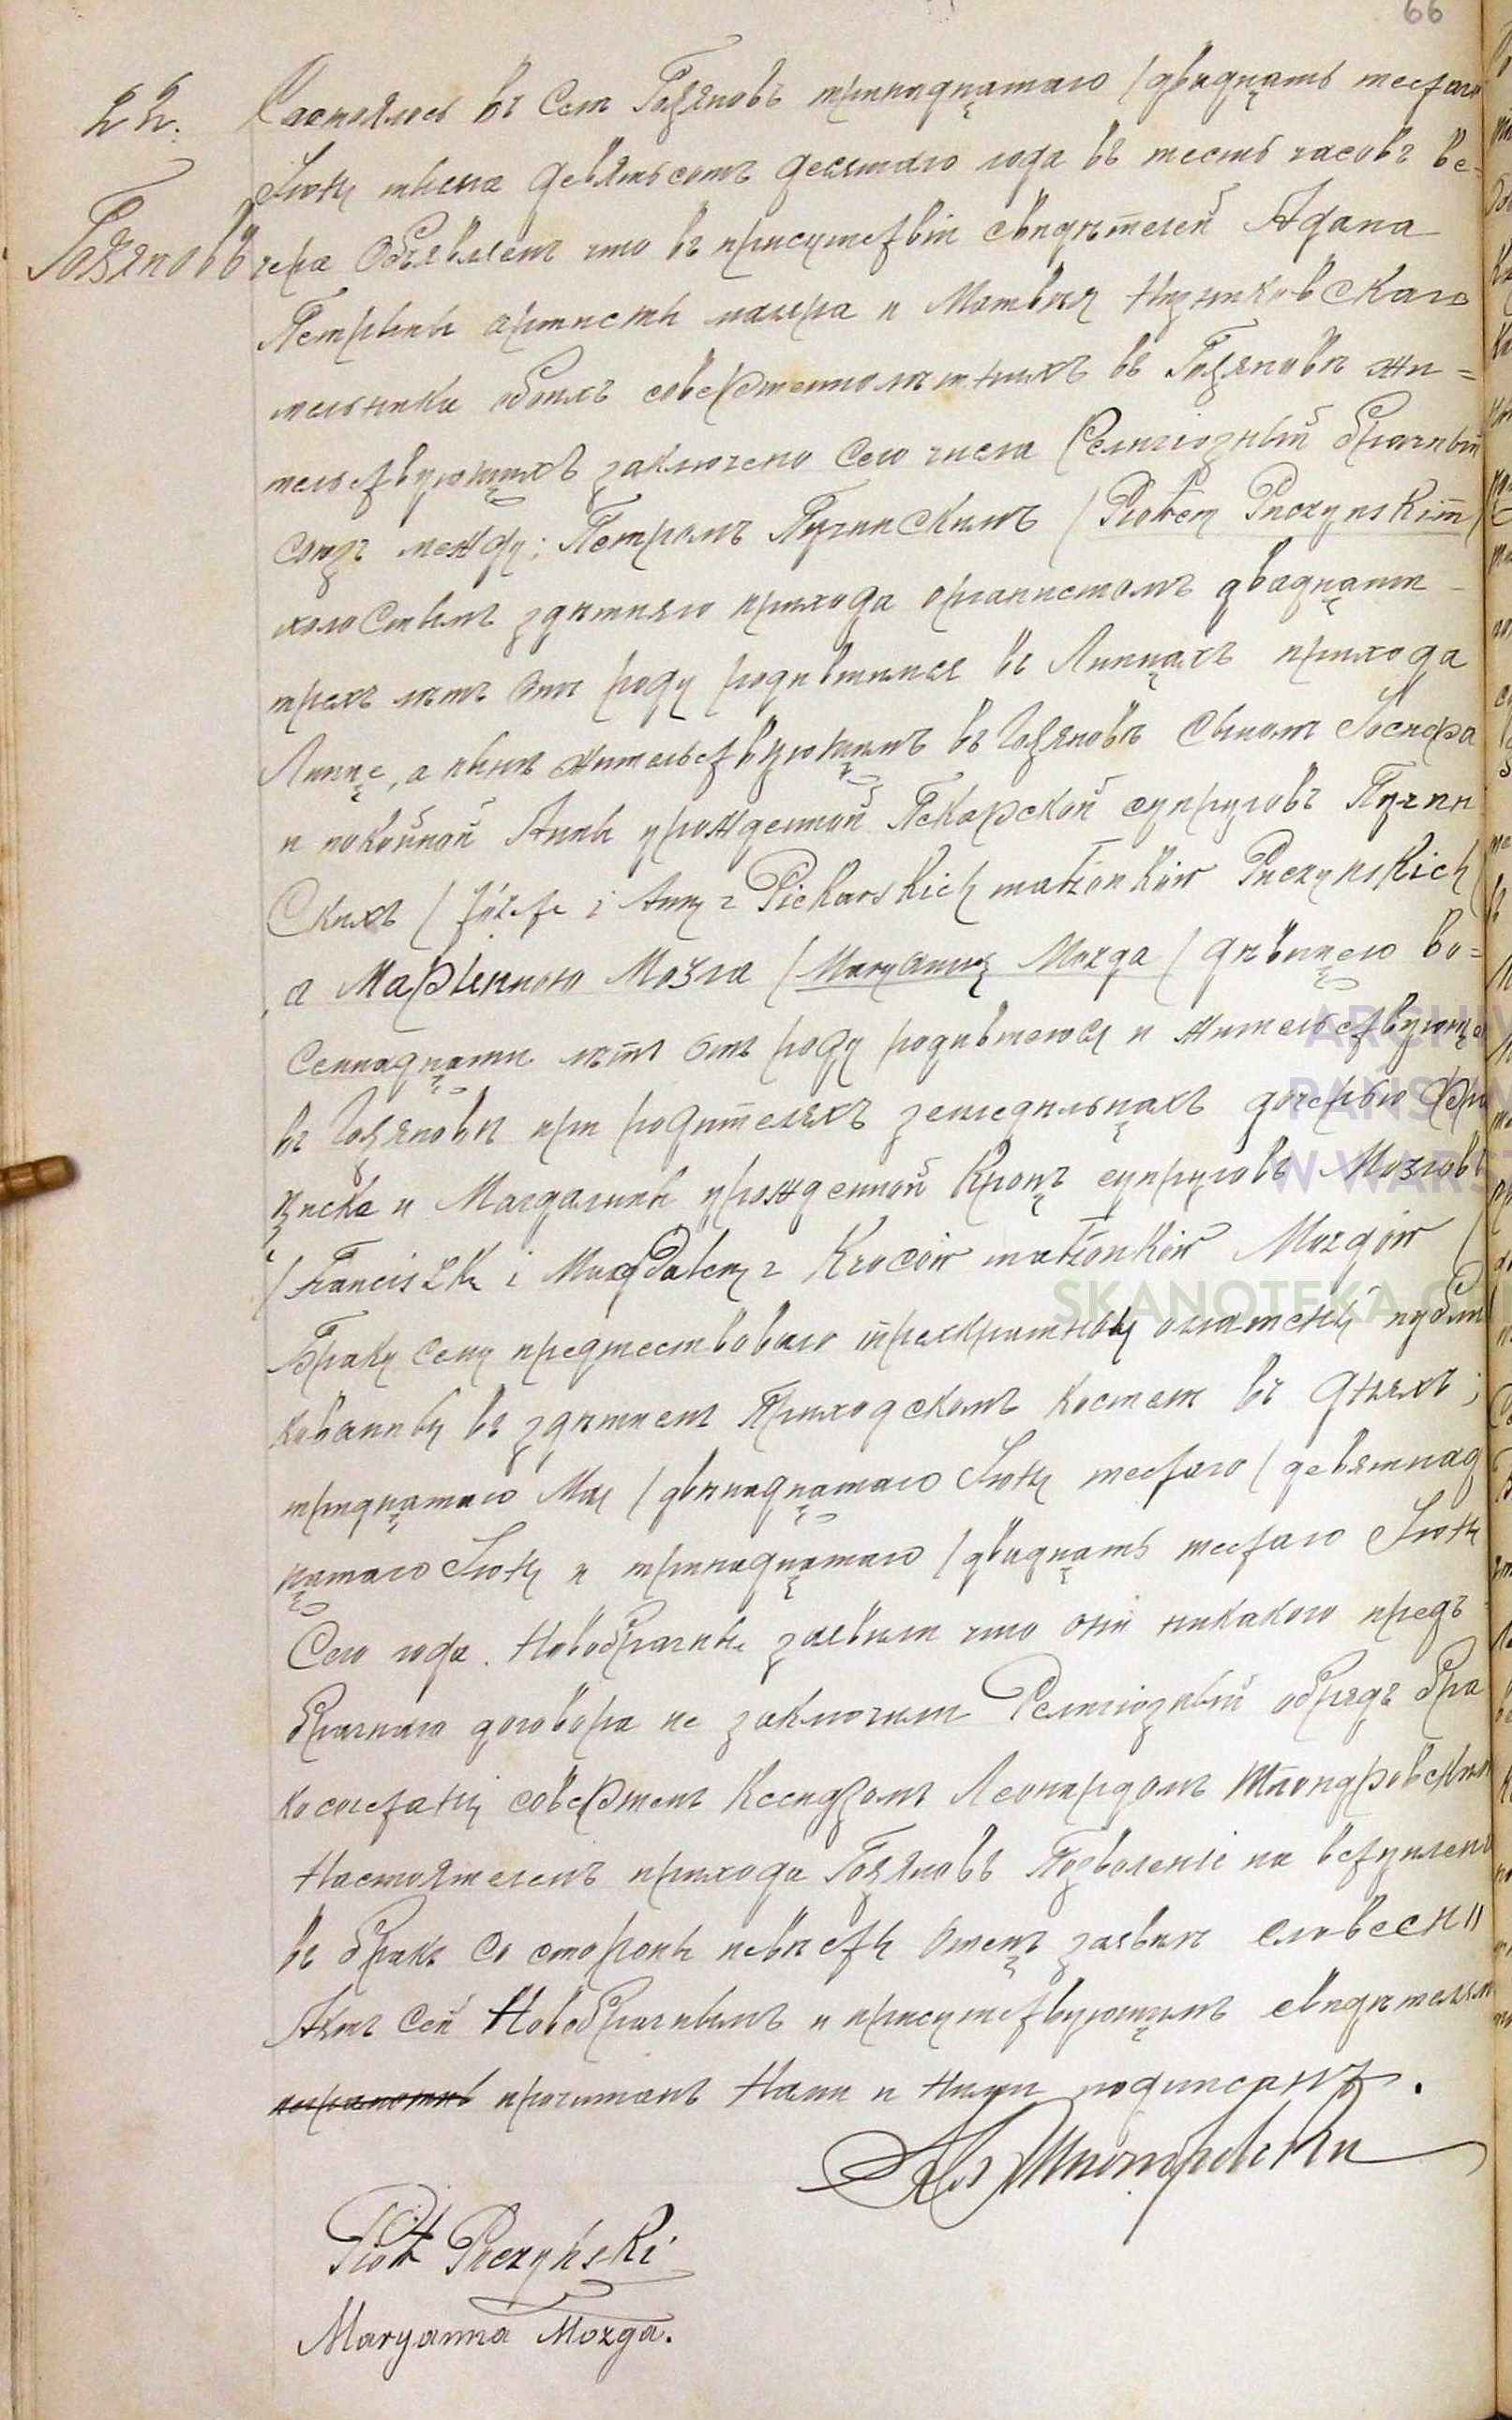 66
22.
Гозяновъ
Состоялось въ селѣ Гозяновѣ тринадцатаго /двадцать шестаго
Іюня тысяча девятьсотъ десятаго года въ шесть часовъ ве=
чера Объявляемъ что въ присутствіи свидѣтелей Адама
и Матвѣя
мельника обоихъ совершеннолѣтнихъ въ Гозяновѣ жи=
тельствующихъ заключено сего числа Религіозный брачный
союзъ между; Петромъ Пучинскимъ /Piotrem Puczynskim/
холостымъ здѣшняго прихода органистомъ двадцати
трехъ лѣтъ отъ роду родившимся въ Липцахъ прихода
Липце, а нынѣ жительствующимъ въ Гозяновѣ сыномъ Іосифа
и покойной Анны урожденной Пекарской супруговъ Пучин
скихъ /Józefa i Anny z Piekarskich małżonków Puczynskich/
а Марьянною Мозга /Maryanną Mozga/ дѣвицею во=
семнадцати лѣтъ отъ роду родившеюся и жительствующею
въ Гозяновѣ при родителяхъ земледѣльцахъ дочерью Фран
циска и Магдалины урожденной Кроцъ супруговъ Мозговъ
/Franciszka i Magdaleny z Kroców małżonków Mozgów/
Браку сему предшествовало трехкратныя оглашенія публи
кованныя въ здѣшнемъ Приходскомъ костелѣ въ дняхъ;
тридцатаго Мая /двѣнадцатаго Іюня шестаго /девятнад
цатаго Іюня и тринадцатаго /двадцать шестаго Іюня
Сего года. Новобрачные заявили что они никакого предъ
брачнаго договора не заключили Религіозный обрядъ бра
косочетанія совершенъ Ксендзомъ Леонардомъ
Настоятелемъ прихода Гозяновъ Позволеніе на вступленіе
въ бракъ со стороны невѣсты Отецъ заявилъ словесно
Актъ сей Новобрачнымъ и присутствующимъ свидѣтелямъ
прочитанъ Нами и Ними подписанъ.
Piotr Puczyński
Maryanna Mozga.
ARCHIW
PAŃSTW
W WARS
SKANOTEKA.G